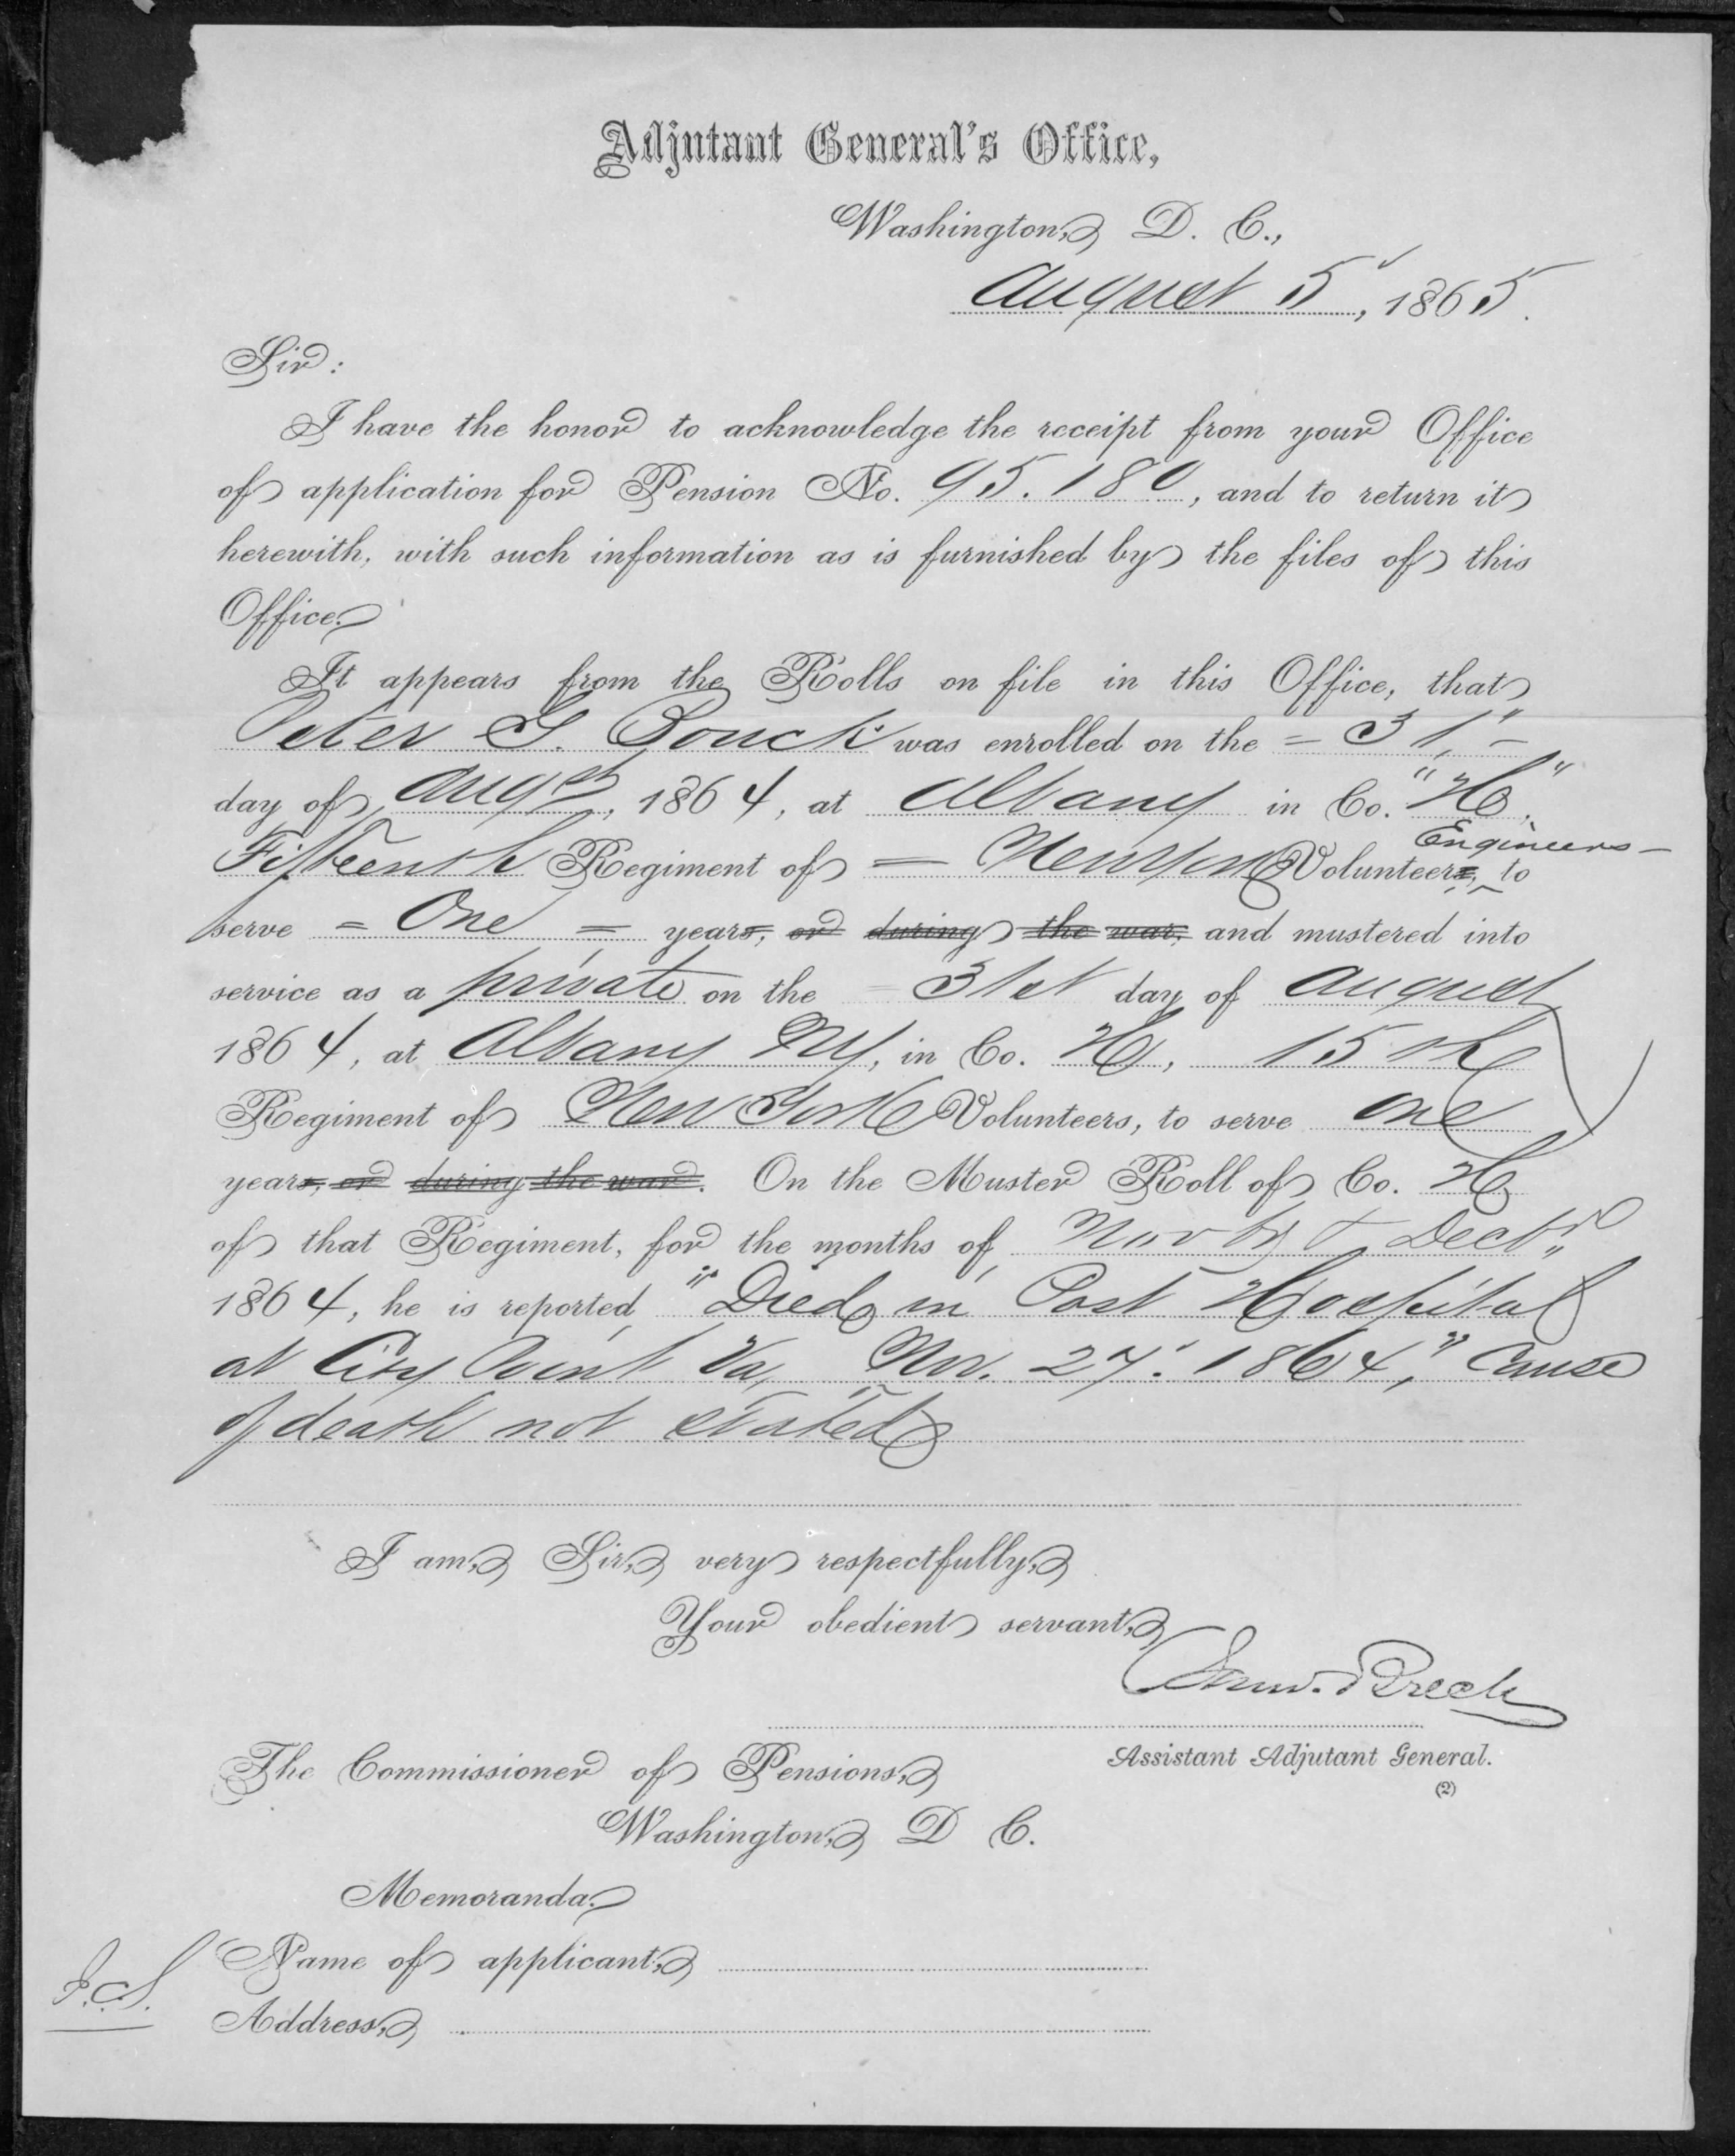 Adjutant General's Office,
Washington, D. C.,
August 5, 1865.
Sir:
I have the honor to acknowledge the receipt from your Office
of application for Pension No. 95.180, and to return it
herewith, with such information as is furnished by the files of this
Office.
It appears from the Rolls on file in this Office, that
Peter G. Bouck was enrolled on the = 31" -
day of Augst, 1864, at Albany in Co. "H",
Fifteenth Regiment of = New York Volunteers, Engineers - to
serve = One = years, or during the war, and mustered into
service as a private on the 31st day of August
1864, at Albany NY, in Co. H, 15th
Regiment of New York Volunteers, to serve one
years, or during the war. On the Muster Roll of Co. H
of that Regiment, for the months of Novbr & Decbr
1864, he is reported "Died in Post Hospital
at City Point Va, Nov. 27. 1864," Cause
of death not stated
I am, Sir, very respectfully,
Your obedient servant,
Saml. Breck
Assistant Adjutant General.
(2)
The Commissioner of Pensions,
Washington, D C.
Memoranda.
Name of applicant,
J.C.S.
Address,